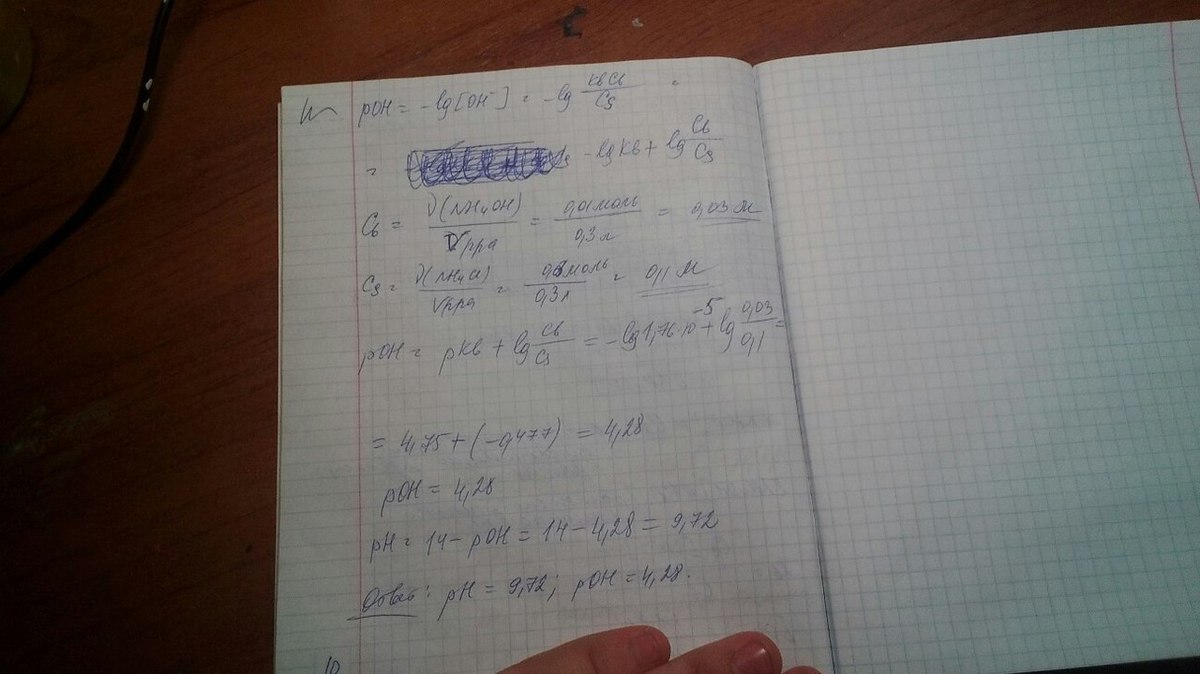 pOH = -lg[OH⁻] = -lg KbCb/Cs =
= -lgKb + lg Cb/Cs
Cb = ν(NH₄OH)/Vр-ра = 0,01моль/0,3л = 0,03 М
Cs = ν(NH₄Cl)/Vр-ра = моль/0,3л = 0,1 М
pOH = pKb + lg Cb/Cs = -lg1,76·10⁻⁵ + lg 0,03/0,1 =
= 4,75 + (-0,477) = 4,28
pOH = 4,28
pH = 14 - pOH = 14 - 4,28 = 9,72
Ответ: pH = 9,72; pOH = 4,28.
10